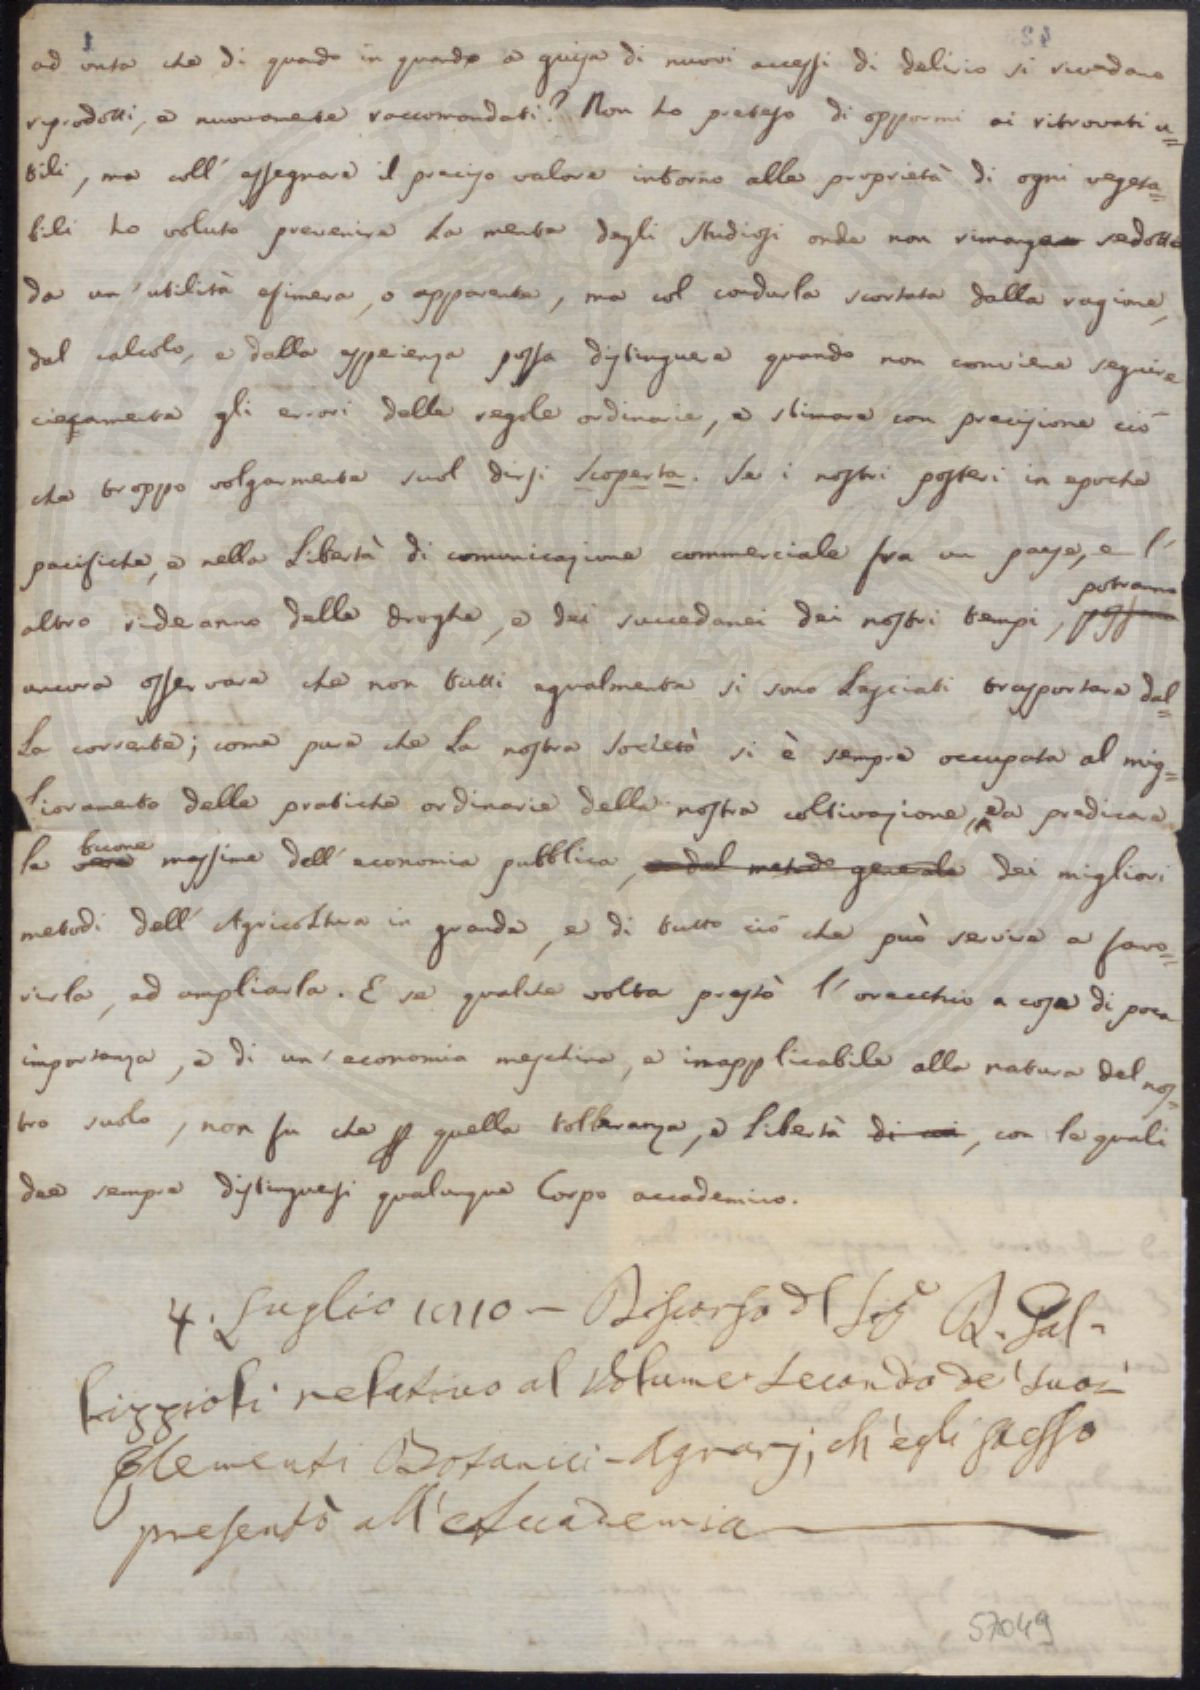 ad onta che di quando in quando a guisa di nuovi accessi di delirio si vuedano
riprodotti, e nuovamente raccomandati? Non ho preteso di oppormi ai ritrovati u=
tili, ma coll' assegnare il preciso valore intorno alle proprietà di ogni vegeta=
bili ho voluto prevenire la mente degli Studiosi onde non rimanga sedotta
da un' utilità efimera, o apparente, ma col condurla scortata dalla ragione,
dal calcolo, e dalla esperienza possa distinguere quando non conviene seguire
ciecamente gli errori delle regole ordinarie, e stimare con precisione ciò
che troppo volgarmente suol dirsi scoperta. Se i nostri posteri in epoche
pacifiche, e nella Libertà di comunicazione commerciale fra un paese, e l'
altro rideranno delle droghe, e dei succedanei dei nostri tempi, potranno
ancora osservare che non tutti egualmente si sono lasciati trasportare dal=
la corrente; come pure che la nostra Società si è sempre occupata al mig=
lioramento delle pratiche ordinarie della nostra coltivazione, e a predicare
le buone massime dell' economia pubblica, ~~e del metodo generale~~ dei migliori
metodi dell' Agricoltura in grande, e di tutto ciò che può servire a favo=
rirla, ad ampliarla. E se qualche volta prestò l' orecchio a cose di poca
importanza, e di un' economia meschina, e inapplicabile alla natura del nos=
tro suolo, non fu che p quella tolleranza, e libertà ~~di cui~~, con le quali
dee sempre distinguersi qualunque Corpo accademico.
4. Luglio 1810 — Discorso del Sigr. O. Gal-
lizzioli relativo al Volume Secondo de' suoi
Elementi Botanici-Agrarj, ch' egli stesso
presentò all' Accademia
57049